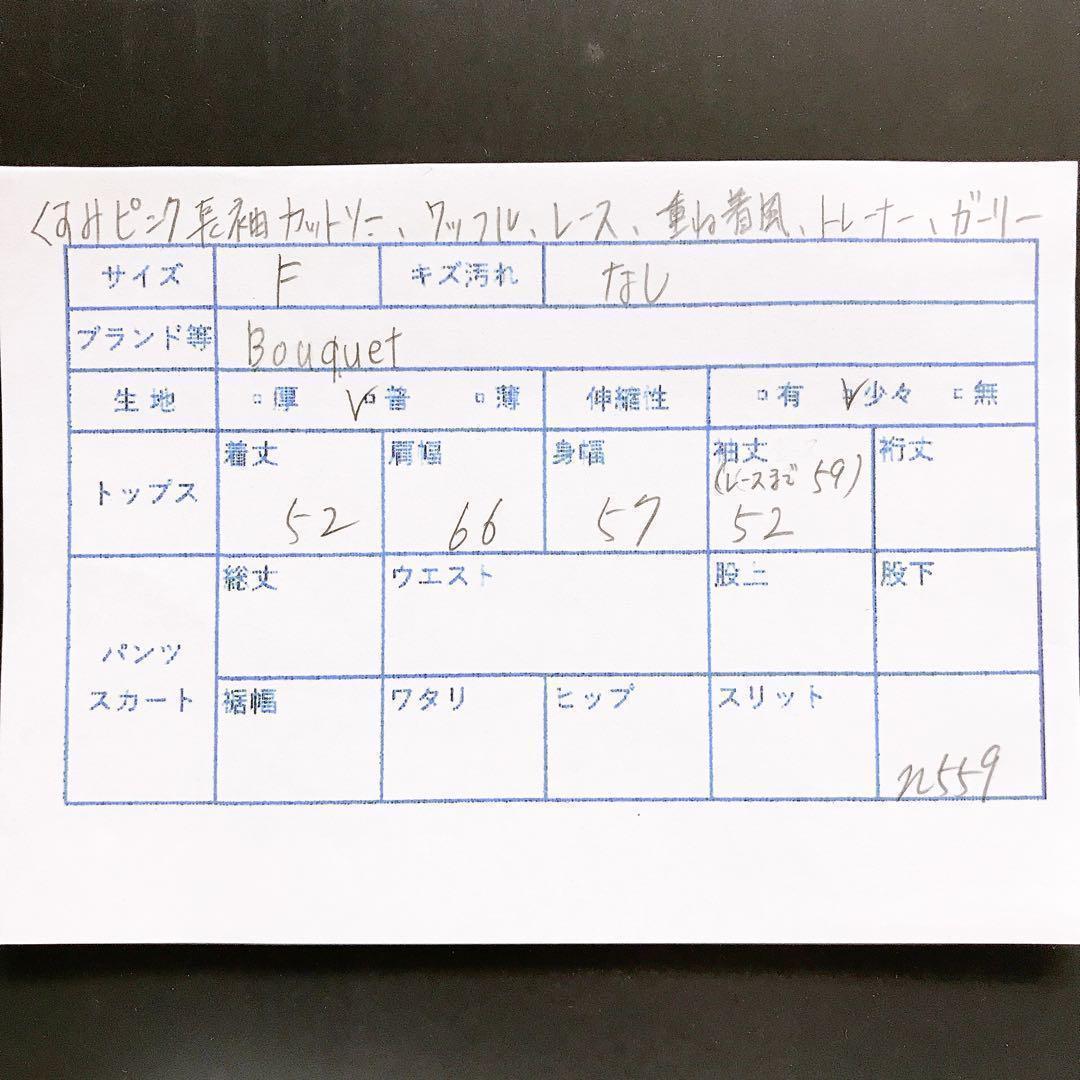 くすみピンク長袖カットソー、ワッフル、レース、重ね着風、トレーナー、ガーリー
サイズ F キズ汚れ なし
ブランド等 Bouquet
生地 □厚 ☑普 □薄 伸縮性 □有 ☑少々 □無
トップス
着丈 肩幅 身幅 袖丈 裄丈
(レースまで 59)
52 66 57 52
パンツ
スカート
総丈 ウエスト 股上 股下
裾幅 ワタリ ヒップ スリット
n559